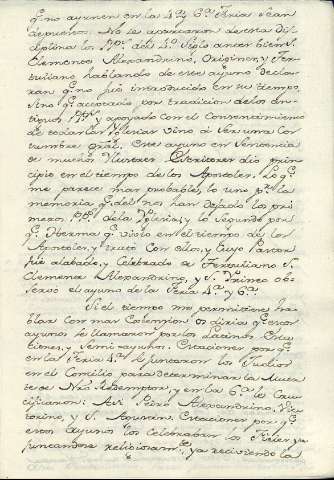 q.e no ayunen en la 4.a y 6.a Feria sean
depuestos. No se apartaron de esta dis-
ciplina los PP.s del 4.o Siglo, antes bien S.
Clemente Alexandrino, Origenes, y Ter-
tuliano hablando de este ayuno decla-
ran q.e no fué introducido en su tiempo,
sino q.e aceptado por tradicion de los An-
tiguos PP. y apoyado con el Consentimiento
de todas las Yglesias vino á ser una cos-
tumbre gral. Este ayuno en Sentencia
de muchos Ilustres Escritores dio prin-
cipio en el tiempo de los Apostoles. Lo q.e
me parece mas probable, lo uno p.r la
memoria q.e del nos han dejado los pri-
meros PP.s de la Yglesia; y lo segundo por
q.e Herma q.e vivió en el tiempo de los
Apostoles, y trató con ellos, y cuyo Pastor
fué alabado, y celebrado de Tertuliano S.
Clemente Alexandrino, y S. Yrineo ob-
servó el ayuno de la Feria 4.a y 6.a
Si el tiempo me permitiese ha-
blar con mas extension os diria q.e estos
ayunos se llamaron por los Latinos Esta-
ciones, y Semi-ayunos. Estaciones por q.e
en la Feria 4.a se juntaron los Judios
en el Concilio para determinar la Muer-
te de Nro Redemptor, y en la 6.a lo Cru-
cificaron: Asi Pedro Alexandrino, Vic-
torino, y S. Agustin. Estaciones por q.e
estos ayunos los celebraban los Fieles ya
juntandose religiosam.te, ya recibiendo la